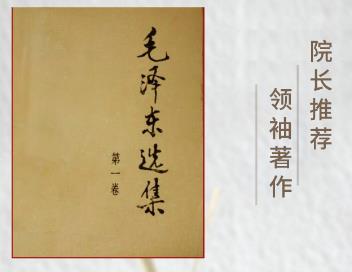 毛泽东选集
第一卷
院长推荐
领袖著作